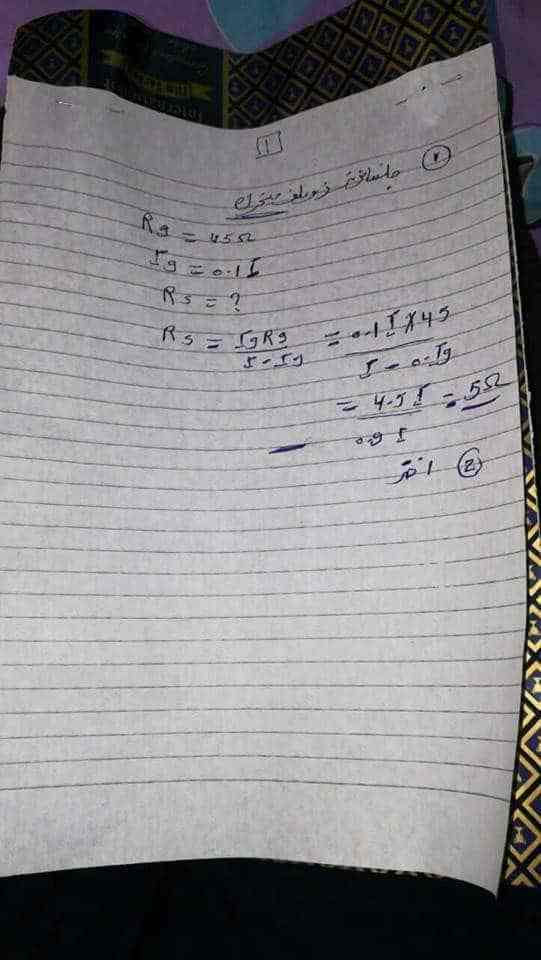 1
① جلفانومتر ذو ملف متحرك
Rg = 45Ω
Ig = 0.1I
Rs = ?
Rs = IgRg / I - Ig = 0.1I X 45 / I - 0.Ig
= 4.5I / 0.9I = 5Ω
② اختر